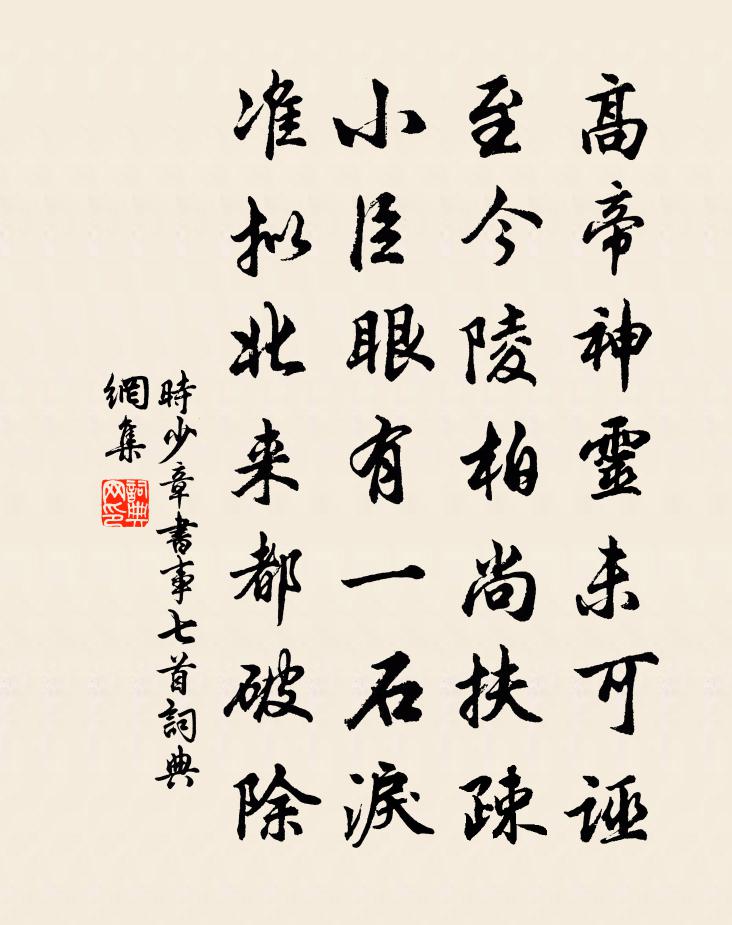 高帝神靈未可誣
至今陵柏尚扶疎
小臣眼有一石淚
准拟北来都破除
時少章書事七首詞典
網集
詞典網印